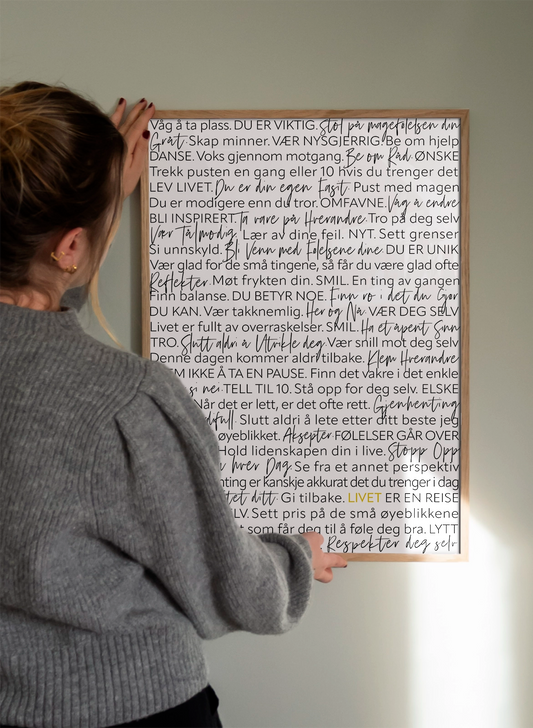 Våg å ta plass. DU ER VIKTIG. Stol på magefølelsen din
Gråt. Skap minner. VÆR NYSGJERRIG. Be om hjelp
DANSE. Voks gjennom motgang. Be om Råd. ØNSKE
Trekk pusten en gang eller 10 hvis du trenger det
LEV LIVET. Du er din egen Fasit. Pust med magen
Du er modigere enn du tror. OMFAVNE. Våg å endre
BLI INSPIRERT. Ta vare på Hverandre. Tro på deg selv
Vær Tålmodig. Lær av dine feil. NYT. Sett grenser
Si unnskyld. Bli Venn med Følelsene dine. DU ER UNIK
Vær glad for de små tingene, så får du være glad ofte
Reflekter. Møt frykten din. SMIL. En ting av gangen
Finn balanse. DU BETYR NOE. Finn ro i det du Gjør
DU KAN. Vær takknemlig. Her og Nå. VÆR DEG SELV
Livet er fullt av overraskelser. SMIL. Ha et åpent Sinn
TRO. Slutt aldri å Utvikle deg. Vær snill mot deg selv
Denne dagen kommer aldri tilbake. Klem Hverandre
EM IKKE Å TA EN PAUSE. Finn det vakre i det enkle
si nei. TELL TIL 10. Stå opp for deg selv. ELSKE
Når det er lett, er det ofte rett. Gjenhenting
dfull. Slutt aldri å lete etter ditt beste jeg
øyeblikket. Aksepter. FØLELSER GÅR OVER
Hold lidenskapen din i live. Stopp Opp
hver Dag. Se fra et annet perspektiv
nting er kanskje akkurat det du trenger i dag
tet ditt. Gi tilbake. LIVET ER EN REISE
LV. Sett pris på de små øyeblikkene
t som får deg til å føle deg bra. LYTT
Respekter deg selv